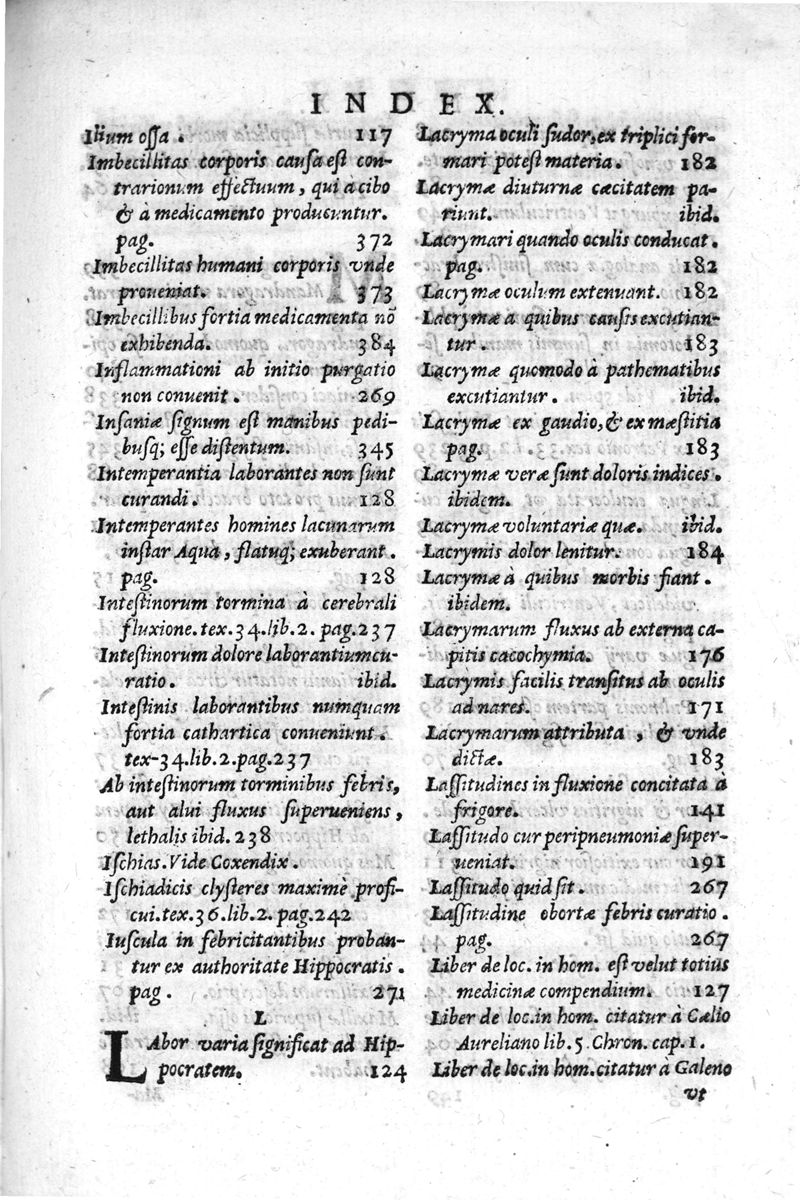 INDEX.
Ilium ossa . 117
Imbecillitas corporis causa est con-
trarionum effectuum, qui à cibo
& à medicamento producuntur.
pag. 372
Imbecillitas humani corporis vnde
proueniat. 373
Imbecillibus fortia medicamenta nõ
exhibenda. 384
Inflammationi ab initio purgatio
non conuenit . 269
Insaniæ signum est manibus pedi-
busq; esse distentum. 345
Intemperantia laborantes non sunt
curandi . 128
Intemperantes homines lacunarum
instar Aqua , flatuq; exuberant .
pag. 128
Intestinorum tormina à cerebrali
fluxione. tex. 34. lib. 2. pag. 237
Intestinorum dolore laborantium cu-
ratio . ibid.
Intestinis laborantibus numquam
fortia cathartica conueniunt .
tex-34. lib. 2. pag. 237
Ab intestinorum torminibus febris,
aut alui fluxus superueniens ,
lethalis ibid. 238
Ischias. Vide Coxendix .
Ischiadicis clysteres maximè profi-
cui. tex. 36. lib. 2. pag. 242
Iuscula in febricitantibus proban-
tur ex authoritate Hippocratis .
pag . 271
L
LAbor varia significat ad Hip-
pocratem. 124
Lacryma oculi sudor, ex triplici for-
mari potest materia . 182
Lacrymæ diuturnæ cæcitatem pa-
riunt. ibid.
Lacrymari quando oculis conducat .
pag. 182
Lacrymæ oculum extenuant. 182
Lacrymæ a quibus causis excutian-
tur . 183
Lacrymæ quomodo à pathematibus
excutiantur . ibid.
Lacrymæ ex gaudio, & ex mæstitia
pag. 183
Lacrymæ veræ sunt doloris indices .
ibidem.
Lacrymæ voluntariæ quæ. ibid.
Lacrymis dolor lenitur. 184
Lacrymæ à quibus morbis fiant .
ibidem.
Lacrymarum fluxus ab externa ca-
pitis cacochymia. 176
Lacrymis facilis transitus ab oculis
ad nares. 171
Lacrymarum attributa , & vnde
dictæ. 183
Lassitudines in fluxione concitata à
frigore. 141
Lassitudo cur peripneumoniæ super-
ueniat. 191
Lassitudo quid sit . 267
Lassitudine obortæ febris curatio .
pag. 267
Liber de loc. in hom. est velut totius
medicinæ compendium. 127
Liber de loc. in hom. citatur à Cælio
Aureliano lib. 5. Chron. cap. 1.
Liber de loc. in hom. citatur à Galeno
vt